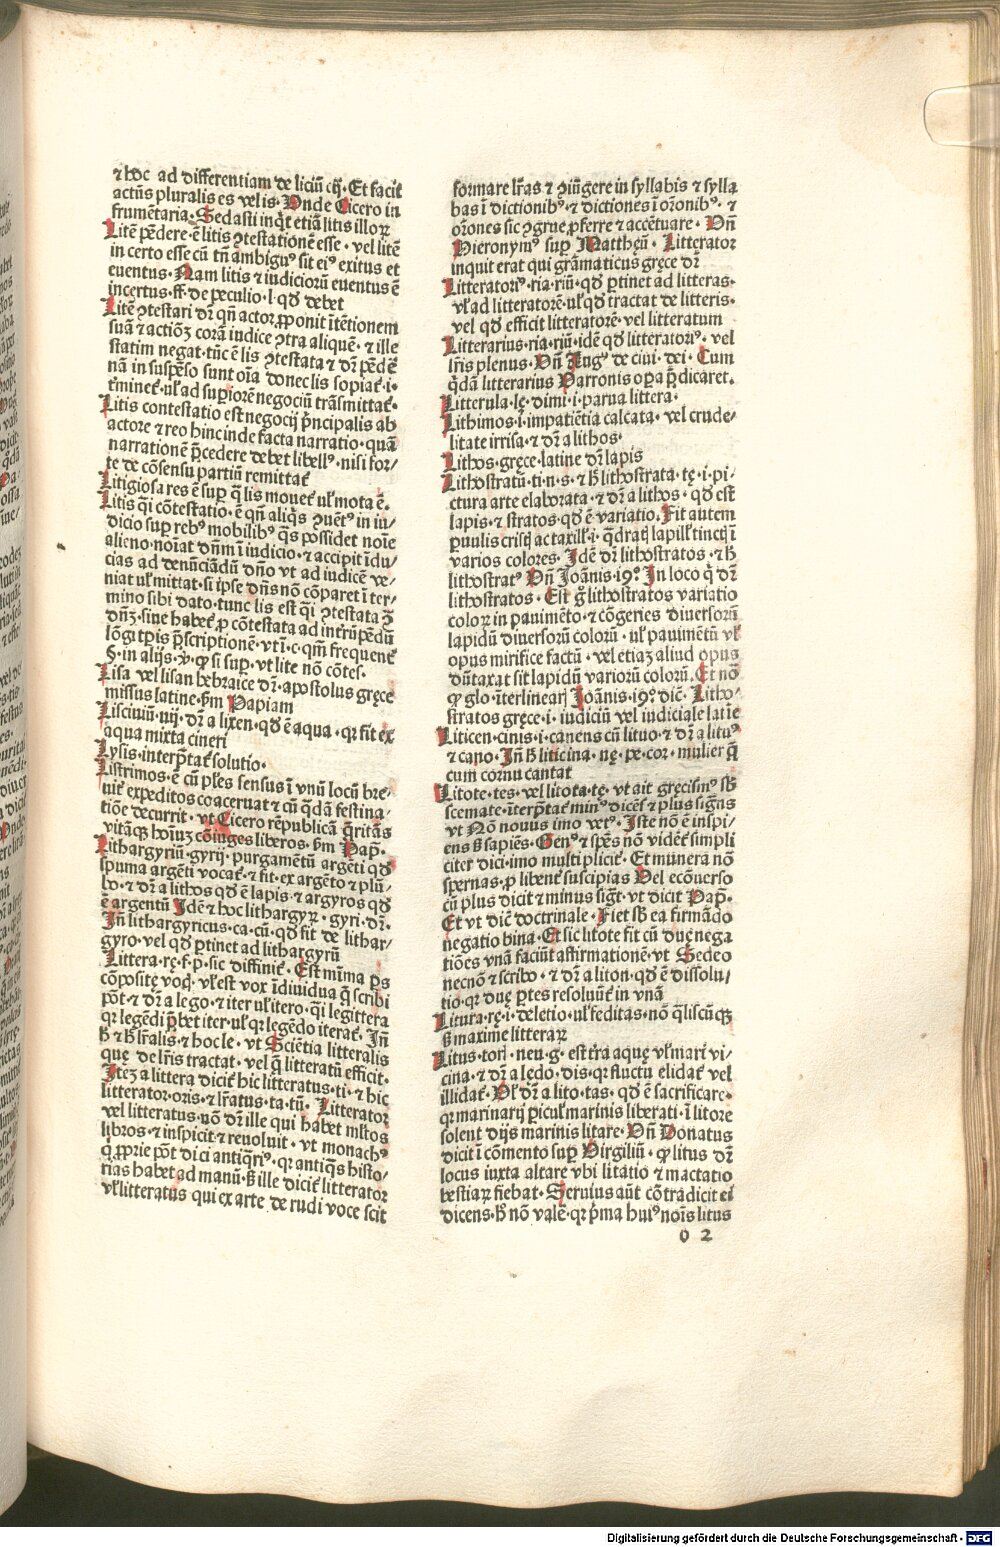 ⁊ hoc ad differentiam de liciū cij. Et facit
actūs pluralis es vel is. Unde Cicero in
frumētaria. Sed asti inqͥt etiā litis illoꝝ
Litē pēdere. ē litis ꝯtestationē esse. vel litē
in certo esse cū tn̄ ambiguꝰ sit eiꝰ exitus et
euentus. Nam litis ⁊ iudicioꝝ euentus ē
incertus. ff. de peculio. l. qd̄ debet
Litē ꝯtestari dr̄ qn̄ actor ꝓponit ītētionem
suā ⁊ actiōꝫ corā iudice ꝯtra aliquē. ⁊ ille
statim negat. tūc ē lis ꝯtestata ⁊ dr̄ pēdē
nā in suspēso sunt oīa donec lis sopiat᷑. i.
t̄minet᷑. vl̓ ad supiorē negociū trāsmittat᷑.
Litis contestatio est negocij p̄ncipalis ab
actore ⁊ reo hincinde facta narratio. quā
narrationē p̄cedere debet libellꝰ. nisi for/
te de cōsensu partiū remittat᷑
Litigiosa res ē sup q̄ lis mouet᷑ vl̓ mota ē.
Litis qͥ cōtestatio. ē qn̄ aliqͥs ꝯuētꝰ in iu/
dicio sup rebꝰ mobilibꝰ qͣs possidet noīe
alieno. noīat dn̄m ī iudicio. ⁊ accipit īdu/
cias ad denūciādū dn̄o vt ad iudicē ve/
niat vl̓ mittat. si ipse dn̄s nō cōparet ī ter/
mino sibi dato. tunc lis est qͣi ꝯtestata ꝯͣ
dn̄ꝫ. siue habet᷑ ꝓ cōtestata ad intrūpēdū
lōgi tꝑis p̄scriptionē. vt ī. c. qm̄ frequent᷑
§. in alijs. ꝟ. ꝙ si sup. vt lite nō cōtes.
Lisa vel lisan hebraice dr̄. apostolus grece
missus latine. fm̄ Papiam
Lisciuiū. uij. dr̄ a lixen. qd̄ ē aqua. qꝛ fit ex
aqua mixta cineri
Lysis. interp̄tat᷑ solutio.
Listrimos. ē cū plēs sensus ī vnū locū bre/
uit᷑ expeditos coaceruat ⁊ cū qͣdā festina/
tiōe decurrit. vt Cicero rēpublicā q̄ritās
vitāqꝫ hoīuꝫ cōiuges liberos. fm̄ Pap.
Lithargyriū. gyrij. purgamētū argēti qd̄
spuma argēti vocat᷑. ⁊ fit. ex argēto ⁊ plū/
bo. ⁊ dr̄ a lithos qd̄ ē lapis. ⁊ argyros qd̄
ē argentū Idē ⁊ hoc lithargyꝝ. gyri. dr̄.
Jn̄ lithargyricus. ca. cū. qd̄ fit de lithar/
gyro. vel qd̄ ptinet ad lithargyrū
Littera. rę. f. p. sic diffinit᷑. Est mīma ps
cōposite voc. vl̓ est vox īdiuidua q̄ scribi
pōt. ⁊ dr̄ a lego. ⁊ iter vl̓ itero. qͥ legittera
qꝛ legēdi p̄bet iter. vl̓ qꝛ legēdo iterat᷑. Jn̄
h̄ ⁊ h̄ lr̄alis. ⁊ hoc le. vt Sciētia litteralis
que de lr̄is tractat. vel q̄ litteratū efficit.
Iteꝫ a littera dicit᷑ hic litteratus. ti. ⁊ hic
litterator. oris. ⁊ lr̄atus. ta. tū. Litterator
vel litteratus. uō dr̄ ille qui habet ml̓tos
libros. ⁊ inspicit ⁊ reuoluit. vt monachꝰ
qͥ ꝓprie pōt dici antiqͣriꝰ. qꝛ antiqͣs histo/
rias habet ad manū. S ille dicit᷑ litterator
vl̓ litteratus qui ex arte de rudi voce scit
formare lr̄as ⁊ ꝯiūgere in syllabis ⁊ sylla
bas ī dictionibꝰ. ⁊ dictiones ī or̄onibꝰ. ⁊
or̄ones sic ꝯgrue ꝓferre ⁊ accētuare. Vn̄
Hieronymꝰ sup Mattheū. Litterator
inquit erat qui grāmaticus grece dr̄
Litteratoriꝰ. ria. riū. qd̄ ptinet ad litteras.
vl̓ ad litteratorē. vl̓ qd̄ tractat de litteris.
vel qd̄ efficit litteratorē. vel litteratum
Litterarius. ria. riū. idē qd̄ litteratoriꝰ. vel
lr̄is plenus. Vn̄ Augꝰ de ciui. dei. Cum
qͥdā litterarius Varronis opa p̄dicaret.
Litterula. lę. dimi. i. parua littera.
Lithimos. i. impatiētia calcata. vel crude/
litate irrisa. ⁊ dr̄ a lithos.
Lithos. grece. latine dr̄ lapis
Lithostratū. ti. n. s. ⁊ h̄ lithostrata. tę. i. pi/
ctura arte elaborata. ⁊ dr̄ a lithos. qd̄ est
lapis. ⁊ stratos. qd̄ ē variatio. Fit autem
puulis crustis ac taxill. i. qͣdratꝭ lapill tinctꝭ ī
varios colores. Idē dr̄ lithostratos. ⁊ h̄
lithostratꝰ Vn̄ Joānis. 19. In loco qͥ dr̄
lithostratos. Est g̊ lithostratos variatio
coloꝝ in pauimēto. ⁊ cōgeries diuersorū
lapidū diuersorū colorū. vl̓ pauimētū vl̓
opus mirifice factū. vel etiaꝫ aliud opus
dūtaxat sit lapidū variorū colorū. Et nō
ꝙ glo. īterlineaꝝ Joānis. 19. dic̄. Litho/
stratos grece. i. iudiciū vel iudiciale latīe
Liticen. cinis. i. canens cū lituo. ⁊ dr̄ a lituꝰ
⁊ cano. Jn̄ h̄ liticina. nę. pe. cor. mulier q̄
cum cornu cantat
Litote. tes. vel litota. tę. vt ait grecismꝰ sb̄
scemate. īterp̄tat᷑ minꝰ dicēs ⁊ plus signās
vt Nō nouus imo vetꝰ. Iste nō ē inspi/
ens S sapiēs. Genꝰ ⁊ spēs nō vident᷑ simpli
citer dici. imo multiplicit᷑. Et munera nō
spernas. ꝓ libent᷑ suscipias Vel ecōuerso
cū plus dicit ⁊ minus sigt. vt dicit Pap.
Et vt dic̄ doctrinale. Fiet sb̄ ea firmādo
negatio bina. Et sic litote fit cū duę nega
tiōes vnā faciūt affirmationē. vt Sedeo
necnō ⁊ scribo. ⁊ dr̄ a liton. qd̄ ē dissolu/
tio. qꝛ duę ptes resoluūt᷑ in vnā
Litura. rę. i. deletio. vl̓ feditas. nō qͣliscūqꝫ
S maxime litteraꝝ
Litus. toris. neu. g. est tr̄a aquę vl̓ maris vi/
cina. ⁊ dr̄ a lędo. dis. qꝛ fluctu elidat᷑ vel
illidat᷑. Vl̓ dr̄ a lito. tas. qd̄ ē sacrificare.
qꝛ marinarij picul̓ marinis liberati. ī litore
solent dijs marinis litare. Vn̄ Donatus
dicit ī cōmento sup Virgiliū. ꝙ litus dr̄
locus iuxta altare vbi litatio ⁊ mactatio
bestiaꝝ fiebat. Seruius aūt cōtradicit ei
dicens. h̄ nō valē. qꝛ pͥma huiꝰ noīs litus
o 2
Digitalisierung gefördert durch die Deutsche Forschungsgemeinschaft - DFG